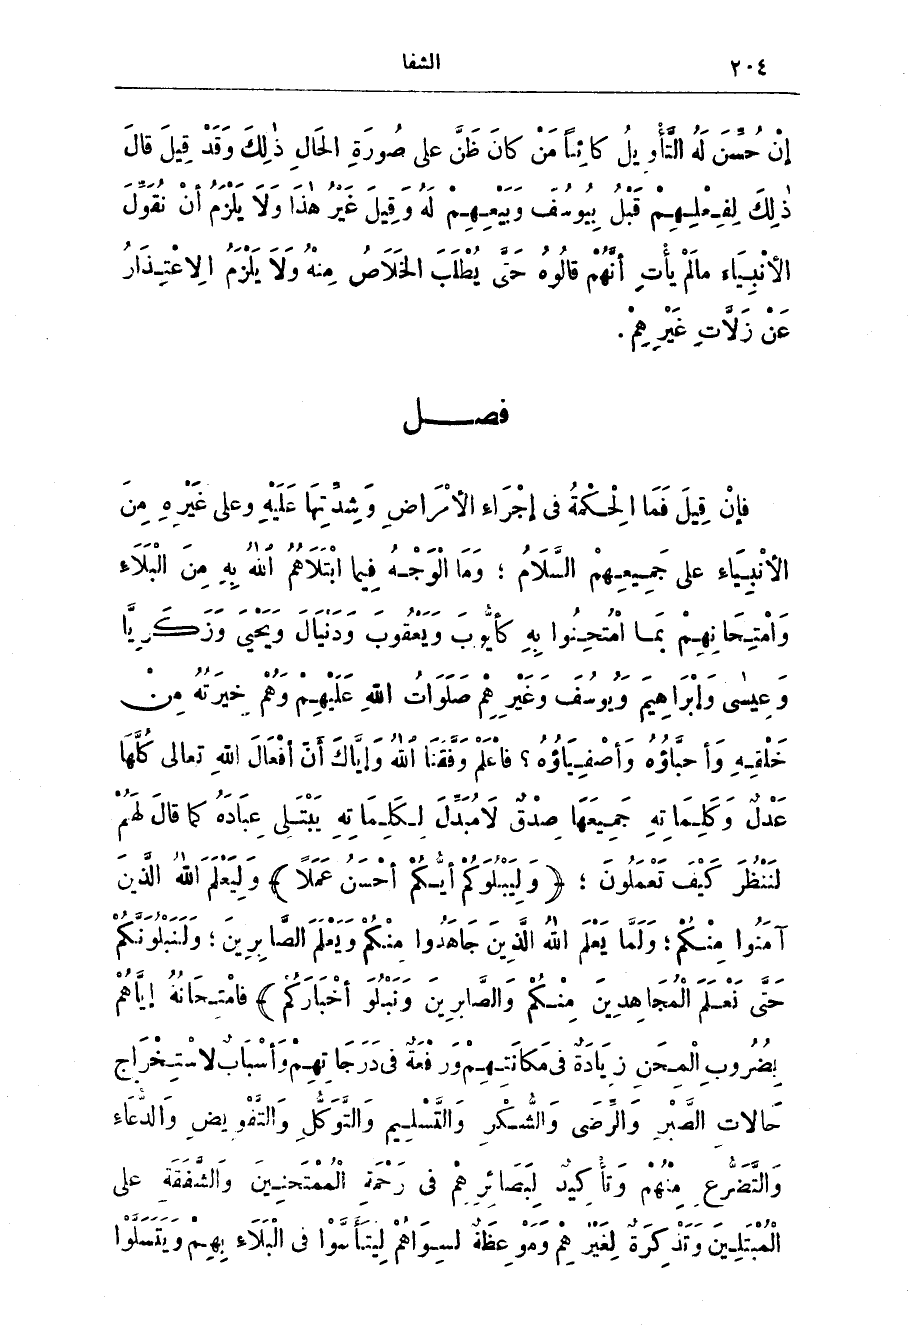 ٢٠٤ الشفا
إنْ حُسِّنَ لَهُ التَّأْوِيلُ كَائِناً مَنْ كانَ ظَنَّ على صُورَةِ الحَالِ ذٰلِكَ وَقَدْ قِيلَ قالَ
ذٰلِكَ لِفِعْلِهِمْ قَبْلُ بِيُوسُفَ وَبَيْعِهِمْ لَهُ وَقِيلَ غَيْرُ هٰذَا وَلَا يَلْزَمُ أنْ نُقَوِّلَ
الأنْبِيَاءَ مالَمْ يأْتِ أنَّهُمْ قالُوهُ حَتَّى يُطْلَبَ الخَلَاصُ مِنْهُ وَلَا يَلْزَمُ الِاعْتِذَارُ
عَنْ زَلَّاتِ غَيْرِهِمْ.
فصل
فإنْ قِيلَ فَمَا الْحِكْمَةُ فى إجْرَاءِ الأمْرَاضِ وَشِدَّتِهَا عَلَيْهِ وعلى غَيْرِهِ مِنَ
الأنْبِيَاءِ على جَمِيعِهِمْ السَّلَامُ ؛ وَمَا الْوَجْهُ فِيما ابْتَلَاهُمُ اللهُ بِهِ مِنَ البَلَاءِ
وَامْتِحَانِهِمْ بَمَا امْتُحِنُوا بِهِ كأيُّوبَ وَيَعْقُوبَ وَدَنْيَالَ وَيَحْيَى وَزَكَرِيَّا
وَعِيسٰى وَإبْرَاهِيمَ وَيُوسُفَ وَغَيْرِهِمْ صَلَوَاتُ اللهِ عَلَيْهِمْ وَهُمْ خِيرَتُهُ مِنْ
خَلْقِهِ وَأَحِبَّاؤُهُ وَأصْفِيَاؤُهُ ؟ فاعْلَمْ وَفَّقَنَا اللهُ وَإِيَّاكَ أنَّ أفْعَالَ اللهِ تعالى كُلَّهَا
عَدْلٌ وَكَلِمَاتِهِ جَمِيعَهَا صِدْقٌ لَامُبَدِّلَ لِكَلِمَاتِهِ يَبْتَلِى عِبَادَهُ كما قالَ لَهُمْ
لِنَنْظُرَ كَيْفَ تَعْمَلُونَ ؛ ﴿ وَلِيَبْلُوَكُمْ أيُّكُمْ أحْسَنُ عَمَلًا ﴾ وَلِيَعْلَمَ اللهُ الَّذِينَ
آمَنُوا مِنْكُمْ ؛ وَلَمَّا يَعْلَمِ اللهُ الَّذِينَ جَاهَدُوا مِنْكُمْ وَيَعْلَمَ الصَّابِرِينَ ؛ وَلَنَبْلُوَنَّكُمْ
حَتَّى نَعْلَمَ الْمُجَاهِدِينَ مِنْكُمْ وَالصَّابِرِينَ وَنَبْلُوَ أخْبَارَكُمْ ﴾ فامْتِحَانُهُ إيَّاهُمْ
بِضُرُوبِ الْمِحَنِ زِيَادَةٌ فى مَكَانَتِهِمْ وَرِفْعَةٌ فى دَرَجَاتِهِمْ وَأسْبَابٌ لاسْتِخْرَاجِ
حَالاتِ الصَّبْرِ وَالرِّضَى وَالشُّكْرِ وَالتَّسْلِيمِ وَالتَّوَكُّلِ وَالتَّفْوِيضِ وَالدُّعَاءِ
وَالتَّضَرُّعِ مِنْهُمْ وَتَأْكِيدٌ لِبَصَائِرِهِمْ فى رَحْمَةِ الْمُمْتَحَنِينَ وَالشَّفَقَةِ على
الْمُبْتَلِينَ وَتَذْكِرَةٌ لِغَيْرِهِمْ وَمَوْعِظَةٌ لِسِوَاهُمْ لِيَتَأَسَّوْا فى الْبَلَاءِ بِهِمْ وَيَتَسَلَّوْا